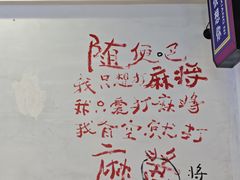 随便吧
我只想打麻将
我只爱打麻将
我有空就打
麻
将